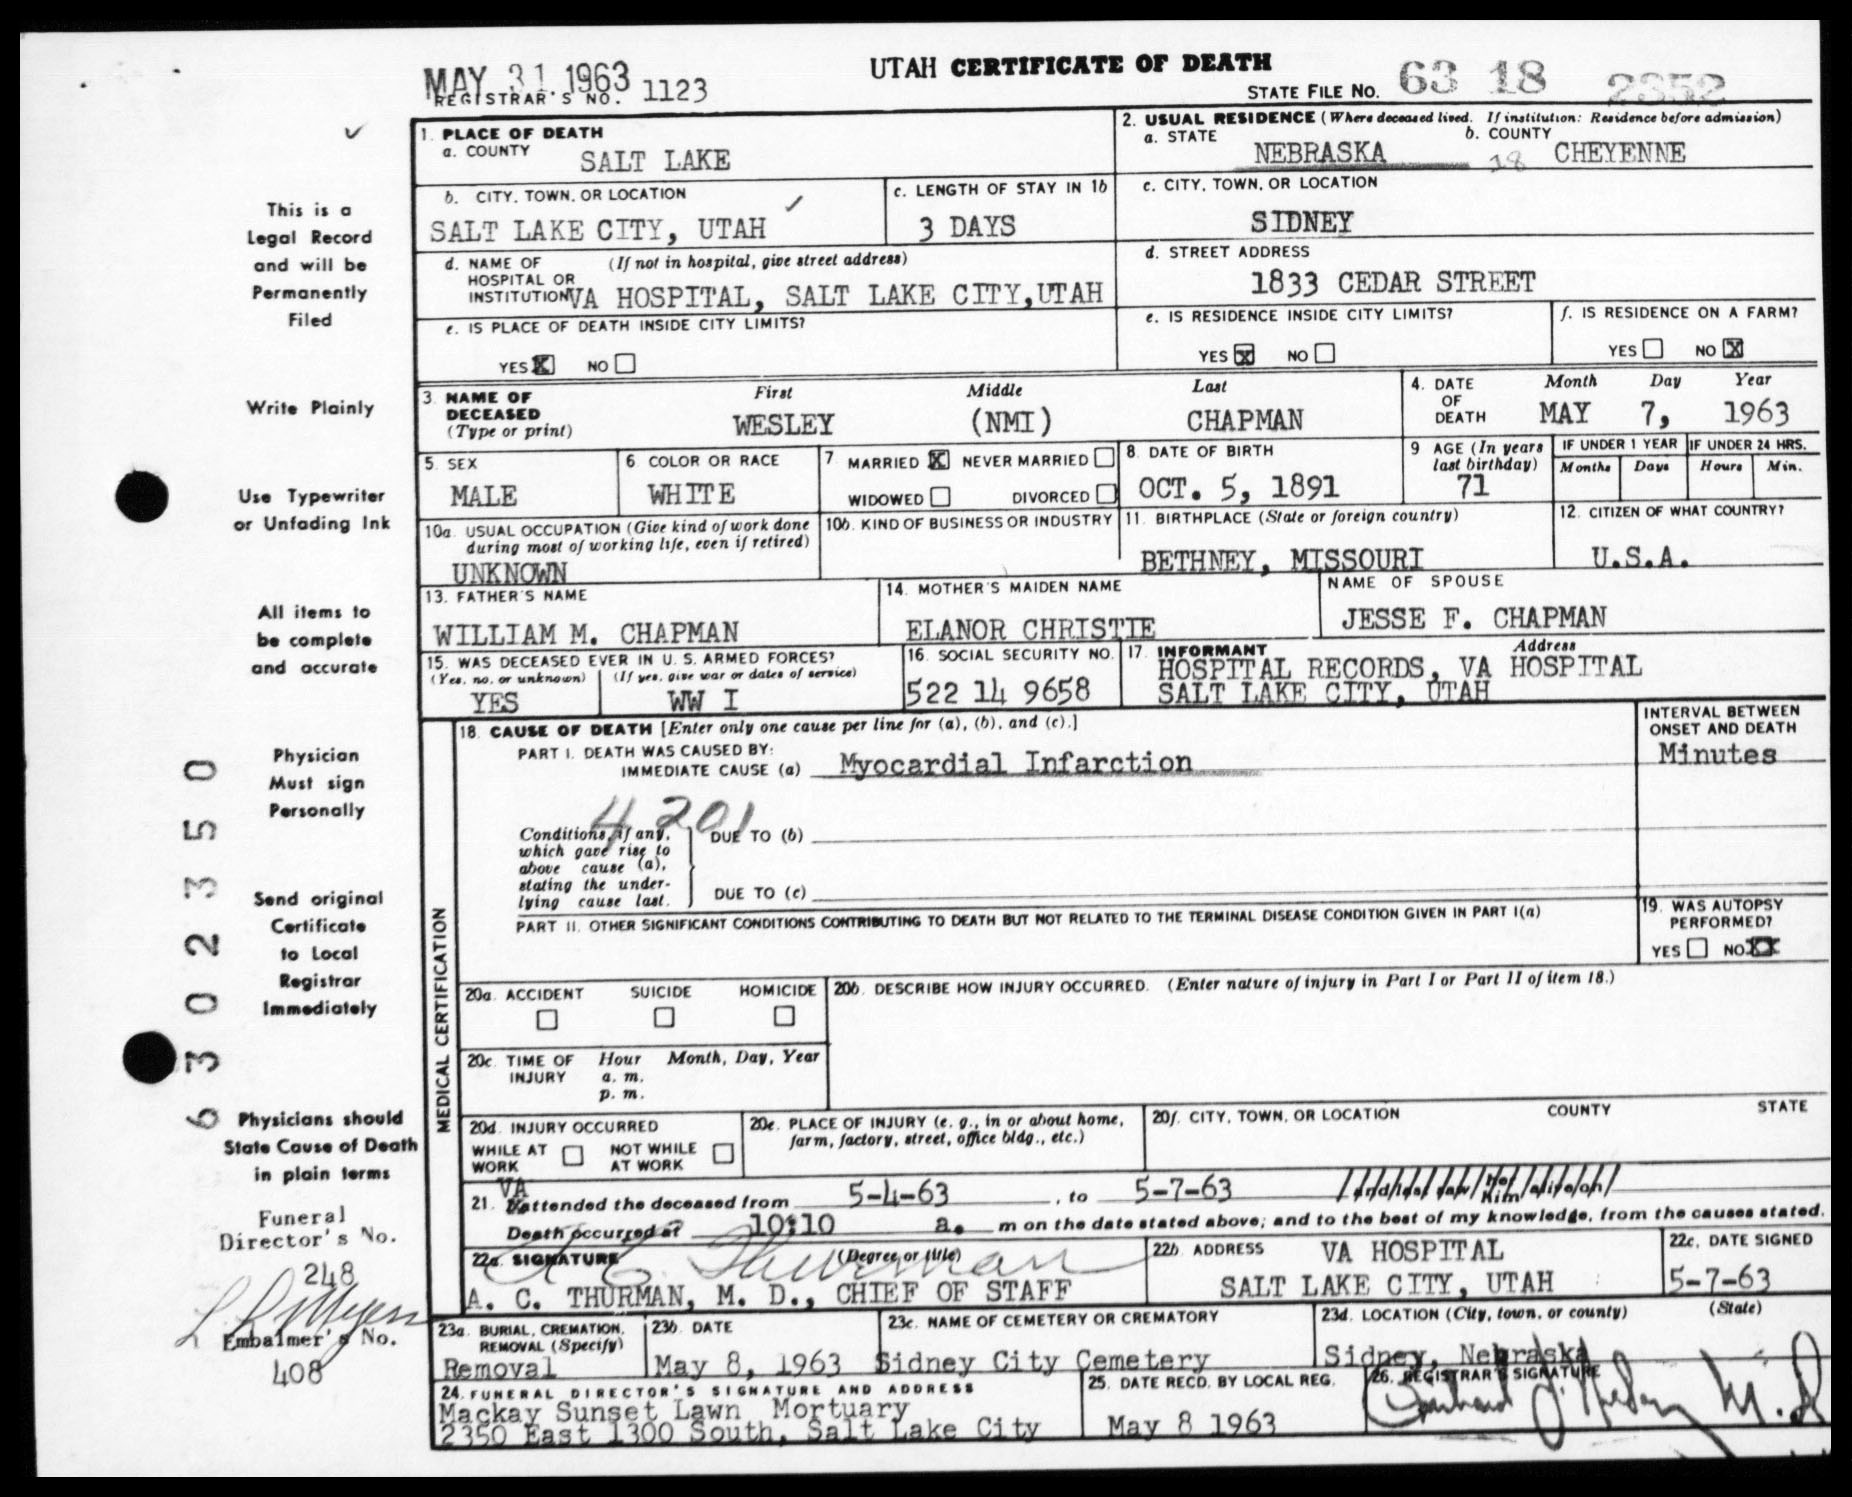 MAY 31.1963
UTAH CERTIFICATE OF DEATH
REGISTRAR'S NO. 1123
STATE FILE NO. 63 18 2352
1. PLACE OF DEATH
a. COUNTY SALT LAKE
2. USUAL RESIDENCE (Where deceased lived. If institution: Residence before admission)
a. STATE NEBRASKA 18 b. COUNTY CHEYENNE
b. CITY, TOWN, OR LOCATION
SALT LAKE CITY, UTAH
c. LENGTH OF STAY IN 1b
3 DAYS
c. CITY, TOWN, OR LOCATION
SIDNEY
d. NAME OF (If not in hospital, give street address)
HOSPITAL OR
INSTITUTION VA HOSPITAL, SALT LAKE CITY, UTAH
d. STREET ADDRESS
1833 CEDAR STREET
e. IS PLACE OF DEATH INSIDE CITY LIMITS?
YES X NO
e. IS RESIDENCE INSIDE CITY LIMITS?
YES X NO
f. IS RESIDENCE ON A FARM?
YES NO X
3. NAME OF
DECEASED
(Type or print)
First Middle Last
WESLEY (NMI) CHAPMAN
4. DATE
OF
DEATH
Month Day Year
MAY 7, 1963
5. SEX
MALE
6 COLOR OR RACE
WHITE
7. MARRIED X NEVER MARRIED
WIDOWED DIVORCED
8. DATE OF BIRTH
OCT. 5, 1891
9 AGE (In years
last birthday)
71
IF UNDER 1 YEAR
Months Days
IF UNDER 24 HRS.
Hours Min.
10a. USUAL OCCUPATION (Give kind of work done
during most of working life, even if retired)
UNKNOWN
10b. KIND OF BUSINESS OR INDUSTRY
11. BIRTHPLACE (State or foreign country)
BETHNEY, MISSOURI
12. CITIZEN OF WHAT COUNTRY?
U.S.A.
13. FATHER'S NAME
WILLIAM M. CHAPMAN
14. MOTHER'S MAIDEN NAME
ELANOR CHRISTIE
NAME OF SPOUSE
JESSE F. CHAPMAN
15. WAS DECEASED EVER IN U. S. ARMED FORCES?
(Yes, no, or unknown) (If yes, give war or dates of service)
YES WW I
16. SOCIAL SECURITY NO.
522 14 9658
17. INFORMANT Address
HOSPITAL RECORDS, VA HOSPITAL
SALT LAKE CITY, UTAH
MEDICAL CERTIFICATION
18. CAUSE OF DEATH [Enter only one cause per line for (a), (b), and (c).]
PART I. DEATH WAS CAUSED BY:
IMMEDIATE CAUSE (a) Myocardial Infarction
INTERVAL BETWEEN
ONSET AND DEATH
Minutes
4201
Conditions, if any,
which gave rise to
above cause (a),
stating the under-
lying cause last.
DUE TO (b)
DUE TO (c)
PART II. OTHER SIGNIFICANT CONDITIONS CONTRIBUTING TO DEATH BUT NOT RELATED TO THE TERMINAL DISEASE CONDITION GIVEN IN PART I(a)
19. WAS AUTOPSY
PERFORMED?
YES NO XX
20a. ACCIDENT SUICIDE HOMICIDE
20b. DESCRIBE HOW INJURY OCCURRED. (Enter nature of injury in Part I or Part II of item 18.)
20c. TIME OF INJURY
Hour Month, Day, Year
a. m.
p. m.
20d. INJURY OCCURRED
WHILE AT WORK NOT WHILE AT WORK
20e. PLACE OF INJURY (e. g., in or about home,
farm, factory, street, office bldg., etc.)
20f. CITY, TOWN, OR LOCATION COUNTY STATE
21. VA attended the deceased from 5-4-63, to 5-7-63 and last saw her him alive on
Death occurred at 10:10 a. m on the date stated above; and to the best of my knowledge, from the causes stated.
22a. SIGNATURE (Degree or title)
A C Thurman
A. C. THURMAN, M. D., CHIEF OF STAFF
22b. ADDRESS VA HOSPITAL
SALT LAKE CITY, UTAH
22c. DATE SIGNED
5-7-63
23a. BURIAL, CREMATION,
REMOVAL (Specify)
Removal
23b. DATE
May 8, 1963
23c. NAME OF CEMETERY OR CREMATORY
Sidney City Cemetery
23d. LOCATION (City, town, or county) (State)
Sidney, Nebraska
24. FUNERAL DIRECTOR'S SIGNATURE AND ADDRESS
Mackay Sunset Lawn Mortuary
2350 East 1300 South, Salt Lake City
25. DATE RECD. BY LOCAL REG.
May 8 1963
26. REGISTRAR'S SIGNATURE
This is a
Legal Record
and will be
Permanently
Filed
Write Plainly
Use Typewriter
or Unfading Ink
All items to
be complete
and accurate
Physician
Must sign
Personally
Send original
Certificate
to Local
Registrar
Immediately
Physicians should
State Cause of Death
in plain terms
Funeral
Director's No.
248
Embalmer's No.
408
63 02350